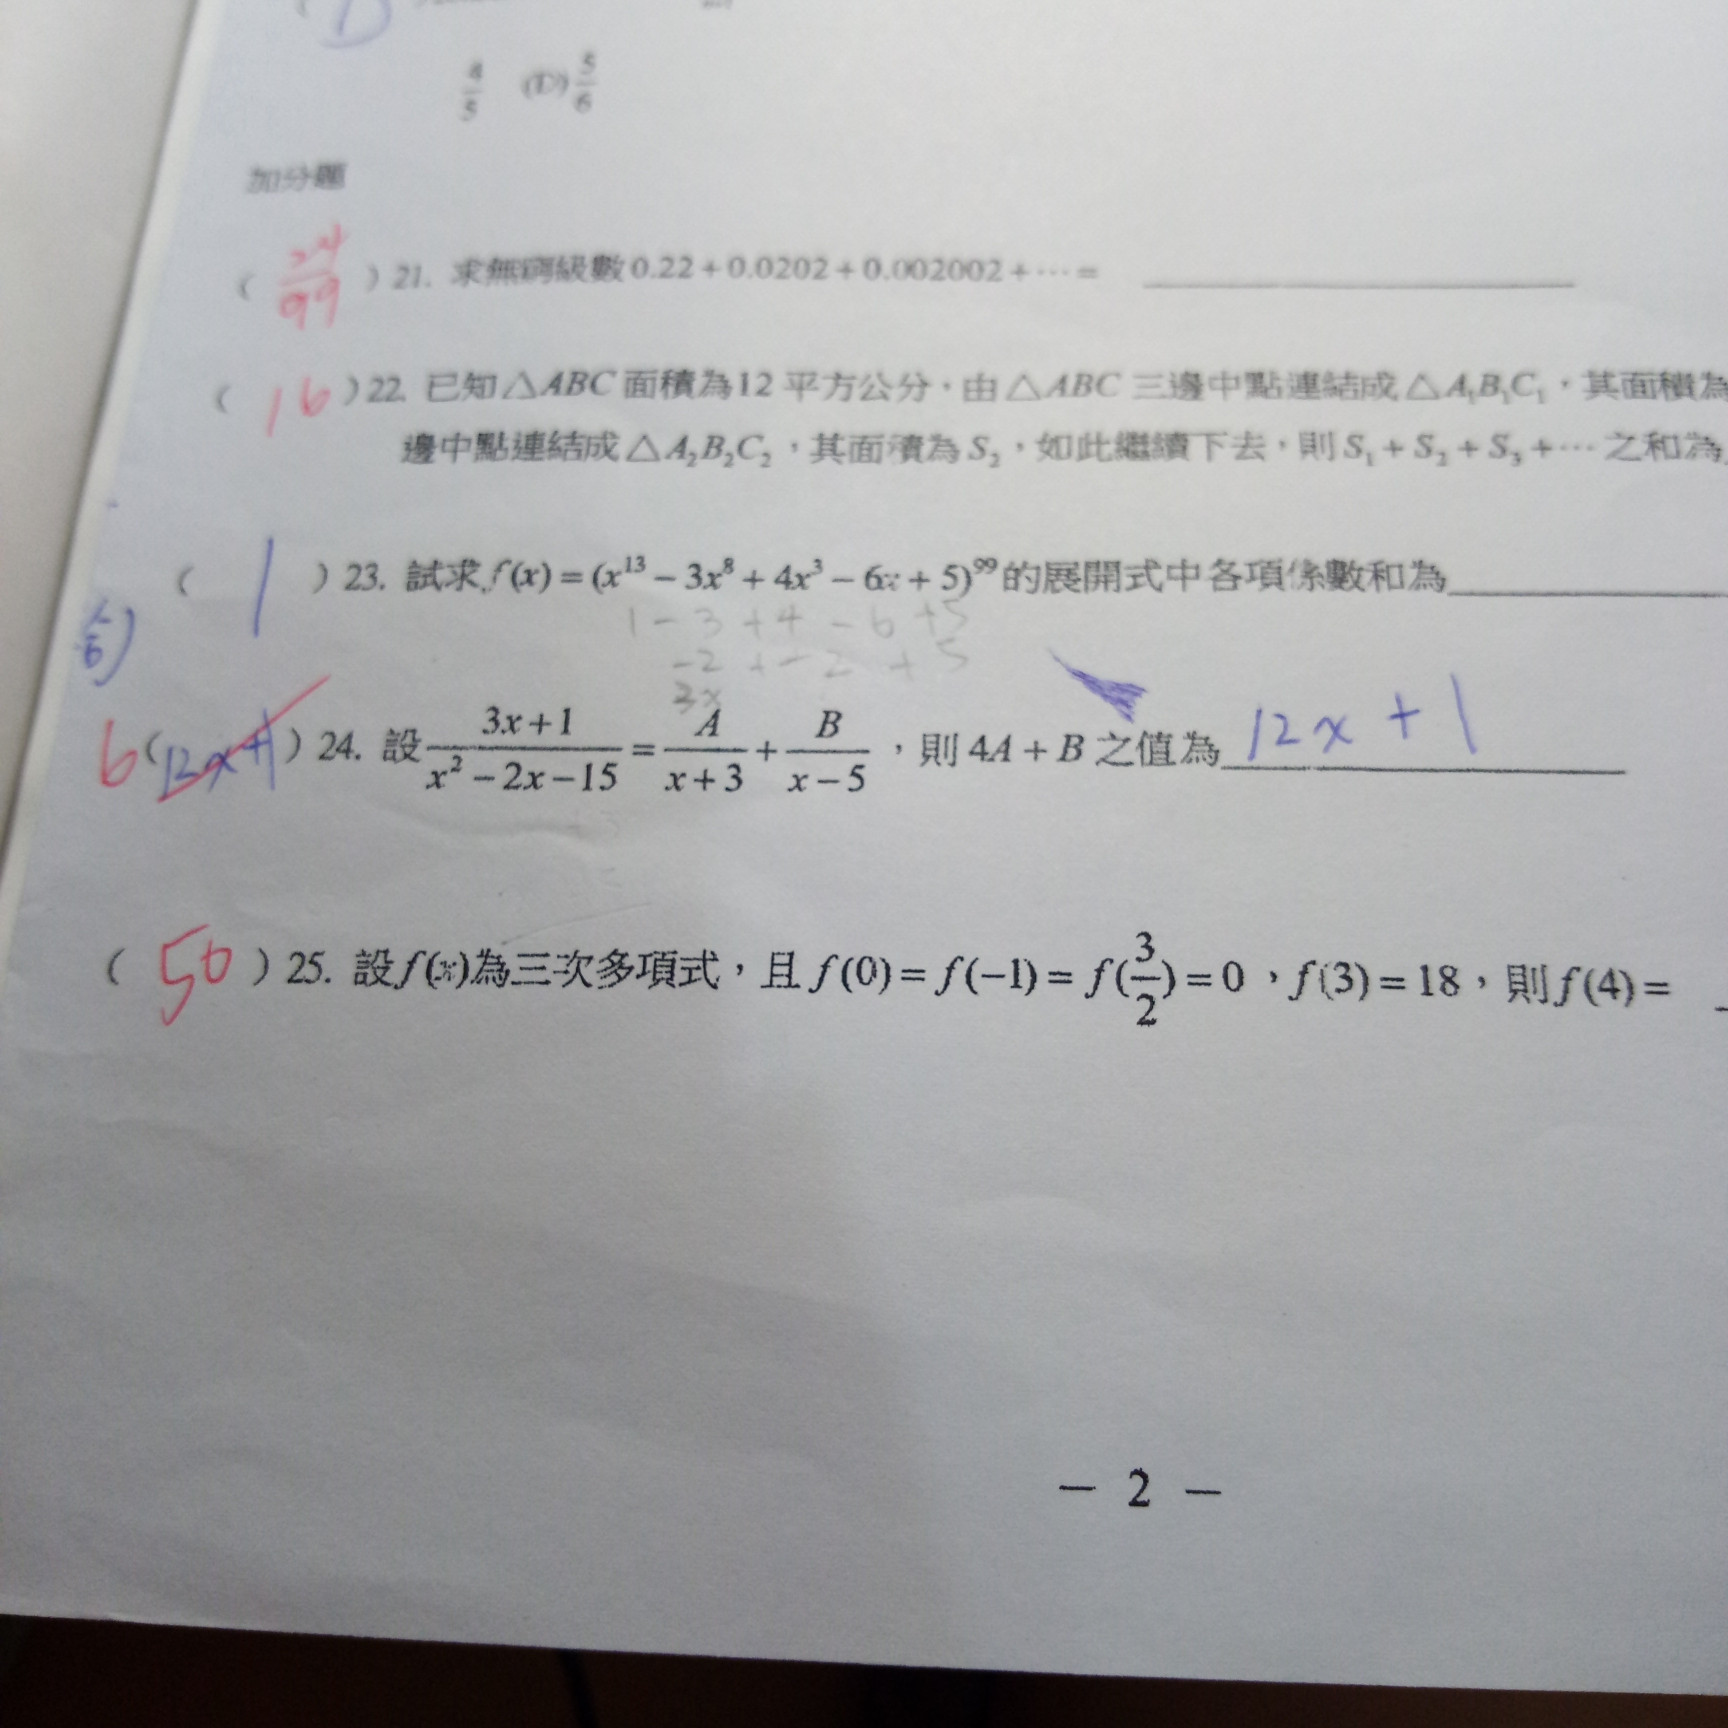 4/5 (D) 5/6
加分題
( 24/99 ) 21. 求無窮級數 0.22 + 0.0202 + 0.002002 + ⋯ = ________
( 16 ) 22. 已知 △ABC 面積為 12 平方公分，由 △ABC 三邊中點連結成 △A₁B₁C₁，其面積為
邊中點連結成 △A₂B₂C₂，其面積為 S₂，如此繼續下去，則 S₁ + S₂ + S₃ + ⋯ 之和為
( 1 ) 23. 試求 f(x) = (x¹³ − 3x⁸ + 4x³ − 6x + 5)⁹⁹ 的展開式中各項係數和為________
1 − 3 + 4 − 6 + 5
−2 + −2 + 5
3x
6 ( 12x+1 ) 24. 設 (3x+1)/(x² − 2x − 15) = A/(x+3) + B/(x−5)，則 4A + B 之值為 12x + 1
( 50 ) 25. 設 f(x) 為三次多項式，且 f(0) = f(−1) = f(3/2) = 0，f(3) = 18，則 f(4) =
− 2 −